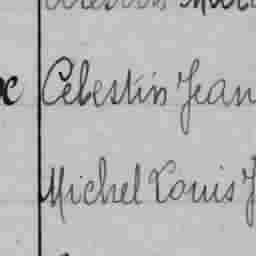 Célestin Jean
Michel Louis J